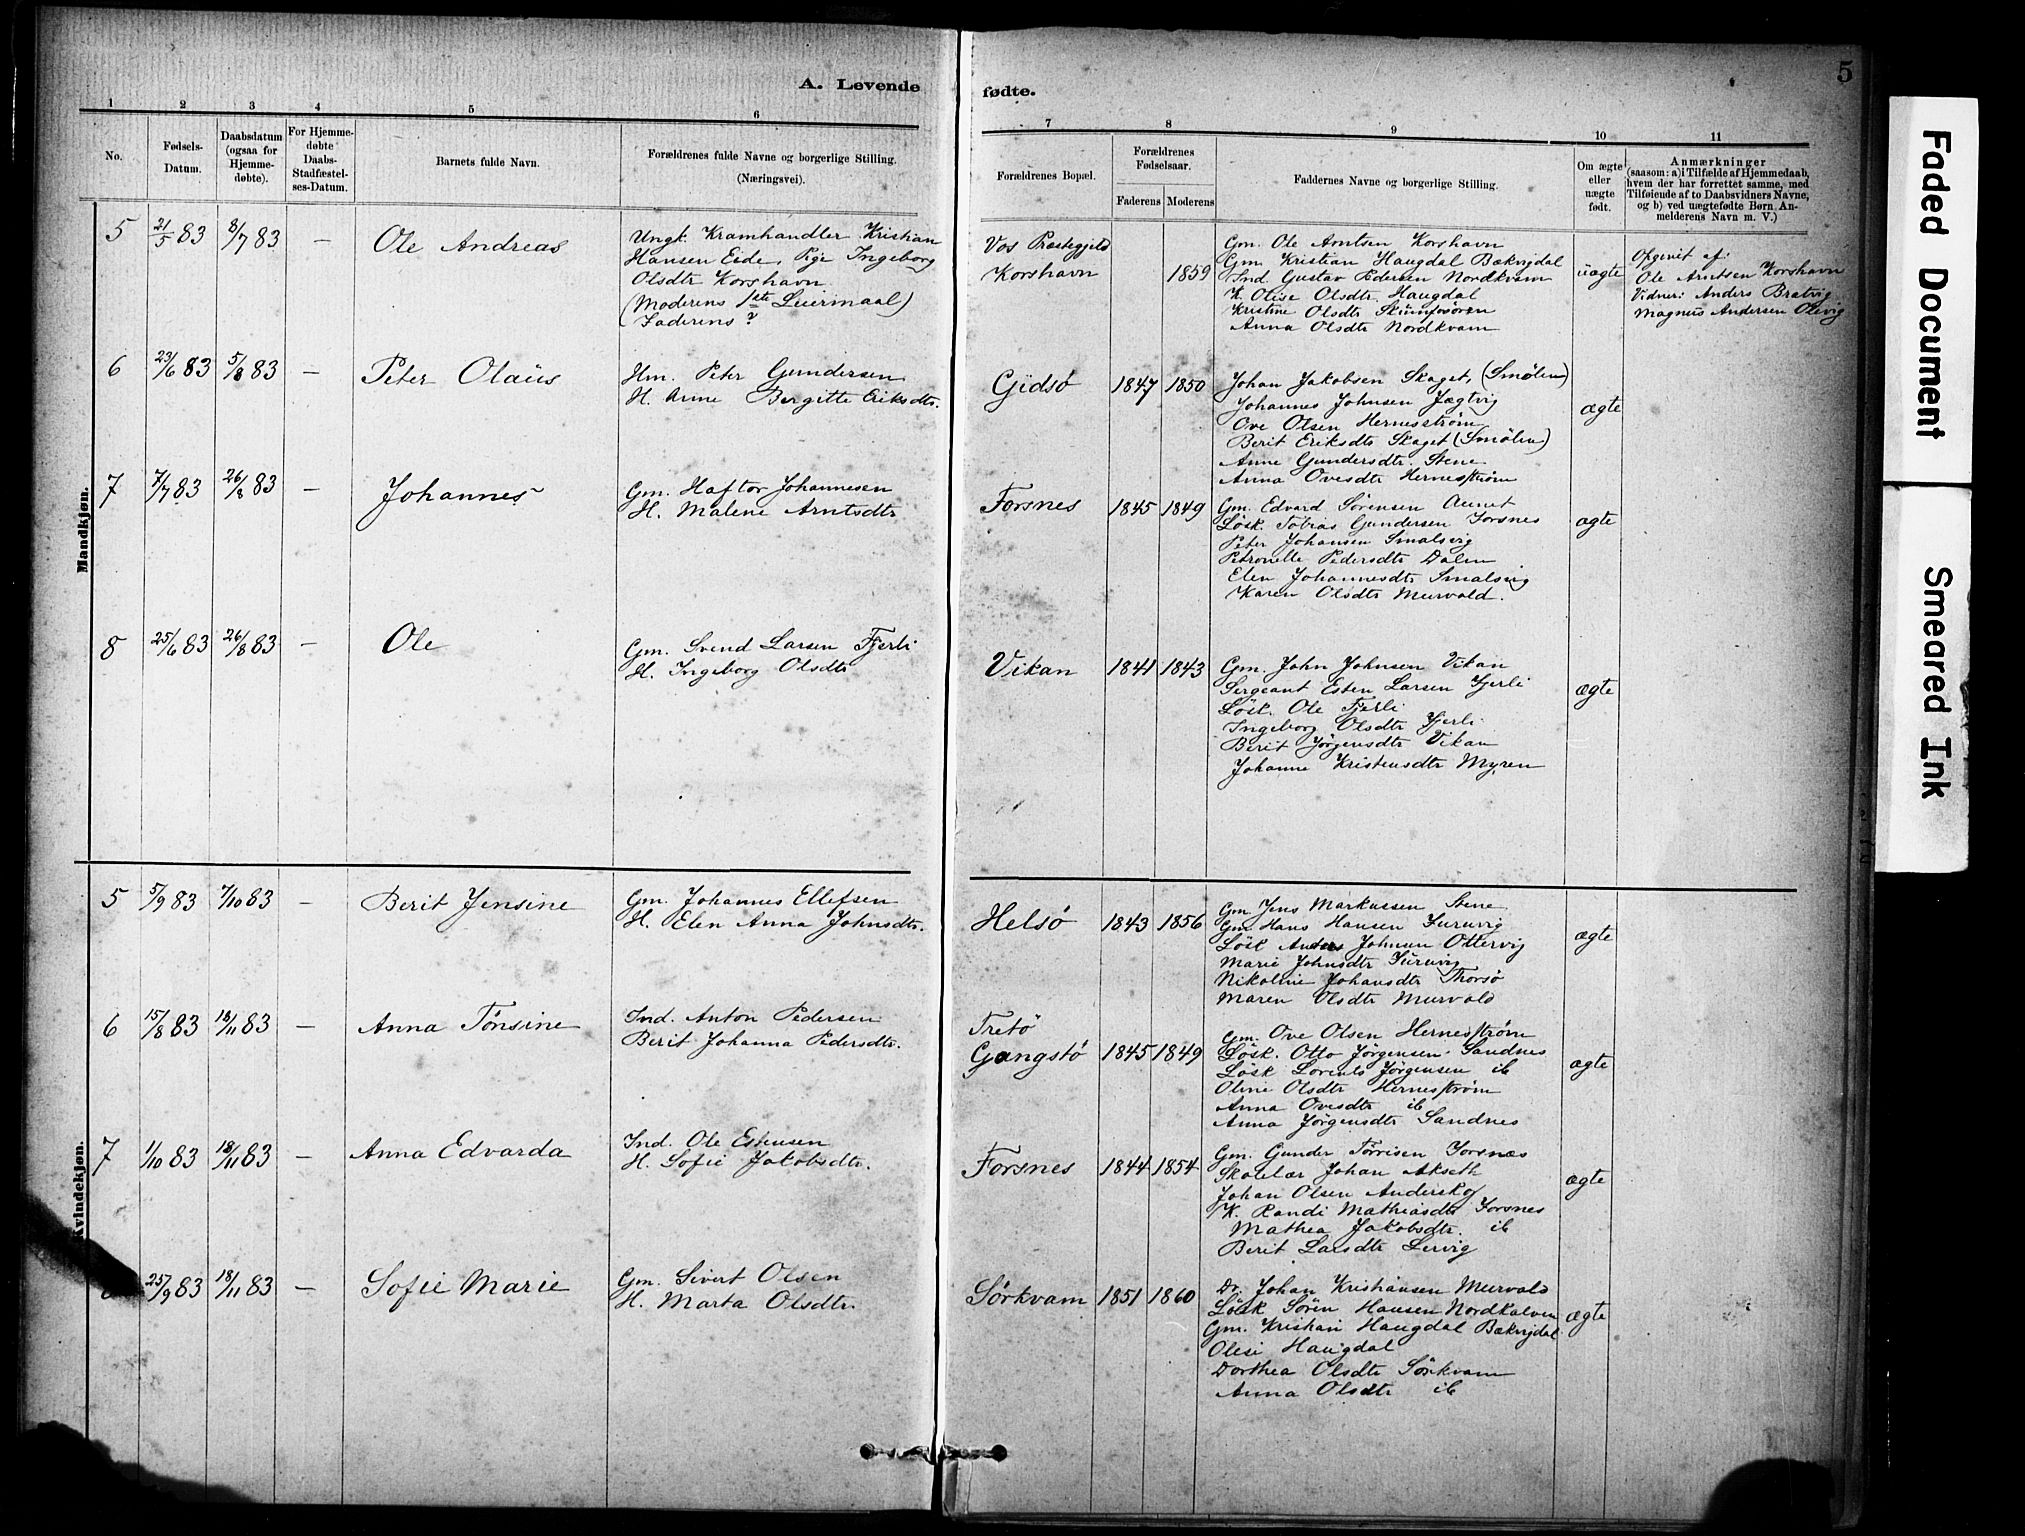 A. Levende
fødte.
5
1 2 3 4 5 6 7 8 9 10 11
No.
Fødsels-Datum.
Daabsdatum (ogsaa for Hjemme-døbte).
For Hjemme-døbte Daabs-Stadfæstel-ses-Datum.
Barnets fulde Navn.
Forældrenes fulde Navne og borgerlige Stilling. (Næringsvei).
Forældrenes Bopæl.
Forældrenes Fødselsaar.
Faderens Moderens
Faddernes Navne og borgerlige Stilling.
Om ægte eller uægte født.
Anmærkninger
(saasom: a) i Tilfælde af Hjemmedaab,
hvem der har forrettet samme, med
Tilføiende af to Daabsvidners Navne,
og b) ved uægtefødte Børn An-
melderens Navn m. V.)
Mandkjøn.
5 21/5 83 8/7 83 — Ole Andreas
Ungk. Kramhandler Kristian
Hansen Eide, Pige Ingeborg
Olsdtr Korshavn
(Moderens 1ste Leiermaal)
Faderens ?
Vos Præstegjeld
Korshavn 1859
Gm. Ole Arntsen Korshavn
Gm. Kristian Haugdal Bækvigdal
Ind. Gustav Pedersen Nordkvam
K. Olise Olsdtr. Haugdal
Kristine Olsdtr
Anna Olsdtr Nordkvam
uægte
Opgivet af:
Ole Arntsen Korshavn
Vidner: Anders Bratvig
Magnus Andersen Olivig
6 23/6 83 5/8 83 — Peter Olaüs
Hm. Peter Gundersen
H. Anne Bergitte Eriksdtr.
Gjdsø 1847 1850
Johan Jakobsen Skaget, (Smølen)
Johannes Johnsen Jægtvig
Ove Olsen Hernesstrøm
Berit Eriksdtr Skaget (Smølen)
Anne Gundersdtr. Stene
Anna Ovesdtr Hernesstrøm
ægte
7 7/7 83 26/8 83 — Johannes
Gm. Haftor Johannesen
H. Malene Arntsdtr
Forsnes 1845 1849
Gm. Edvard Sørensen Aunet
Løsk. Tobias Gundersen Forsnes
Peter Johansen Smalsvig
Petronelle Pedersdtr Dalen
Elen Johannesdtr Smalsvig
Karen Olsdtr Murvold.
ægte
8 25/6 83 26/8 83 — Ole
Gm. Svend Larsen Fjerli
H. Ingeborg Olsdtr
Vikan 1841 1843
Gm. John Johnsen Vikan
Sergeant Esten Larsen Fjerli
Løsk. Ole Fjerli
Ingeborg Olsdtr Fjerli
Berit Jørgensdtr Vikan
Johanne Kristensdtr Myren
ægte
Kvindekjøn.
5 5/9 83 7/10 83 — Berit Jensine
Gm. Johannes Ellefsen
H. Elen Anna Johnsdtr.
Helsø 1843 1856
Gm Jens Markussen Stene
Gm. Hans Hansen Furuvig
Løsk Anders Johnsen Ottervig
Marie Johnsdtr Furuvig
Nikoline Johansdtr Thorsø
Maren Olsdtr Murvold
ægte
6 15/8 83 18/11 83 — Anna Tønsine
Ind. Anton Pedersen
Berit Johanna Pedersdtr.
Tretø
Gangstø 1845 1849
Gm. Ove Olsen Hernesstrøm
Løsk. Otto Jørgensen Sandnes
Løsk Lorents Jørgensen ib
Oline Olsdtr Hernesstrøm
Anna Ovesdtr ib
Anna Jørgensdtr Sandnes
ægte
7 1/10 83 18/11 83 — Anna Edvarda
Ind. Ole Estensen
H. Sofie Jakobsdtr.
Forsnes 1844 1854
Gm. Gunder Tørrisen Forsnæs
Skolelær Johan Akseth
Johan Olsen Anderskog
K. Randi Mathiasdtr Forsnes
Mathea Jakobsdtr. ib
Berit Larsdtr Lervig
ægte
25/9 83 18/11 83 — Sofie Marie
Gm. Sivert Olsen
H. Marta Olsdtr.
Sørkvam 1851 1860
Dr. Johan Kristiansen Murvold
Løsk Søren Hansen Nordkalven
Gm. Kristian Haugdal Bækvigdal
Olise Haugdal
Dorthea Olsdtr Sørkvam
Anna Olsdtr ib
ægte
Faded Document
Smeared Ink